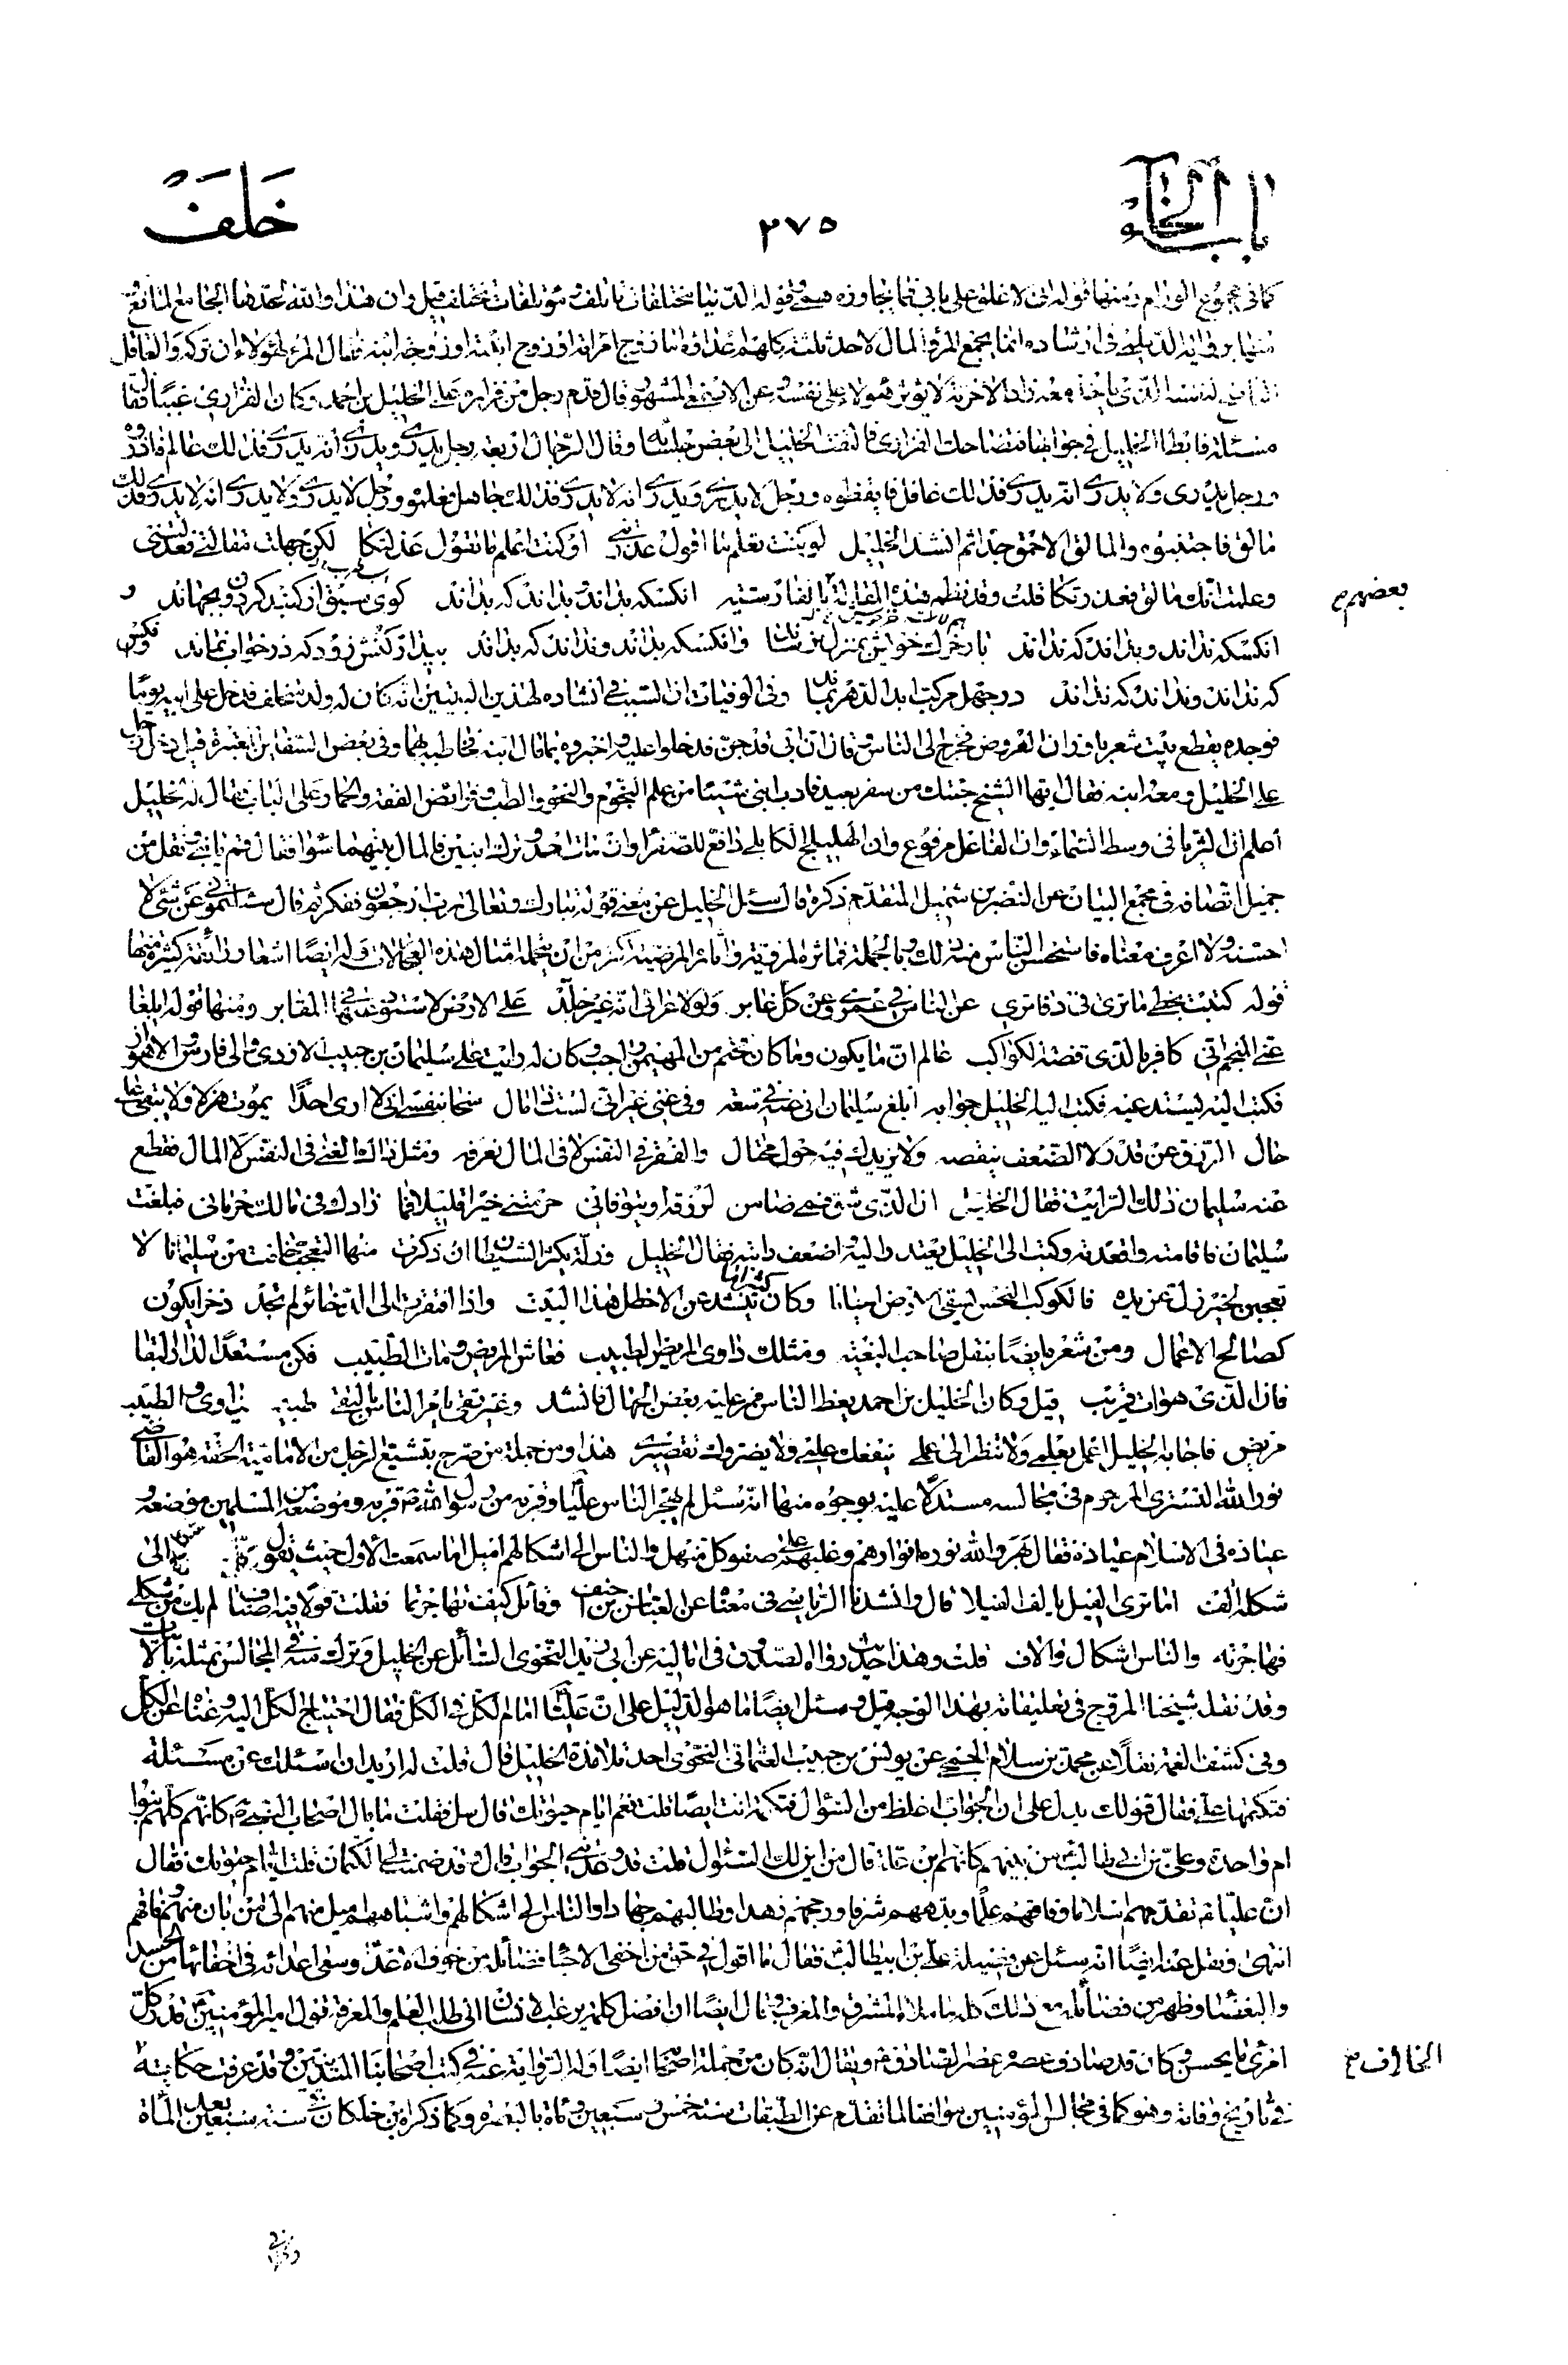 باب الخاء
٢٧٥
خلف
كما فى مجموع الورام ومنها قوله انى لا غلق على بابى فما يجاوزه همى وقوله الدنيا مختلفات تاتلف ومؤتلفات تختلف قيل وان هذا والله الحد الجامع المانع
فى ارشاده انما يجمع المرء المال لاحد ثلثة كلهم اعداؤه اما زوج امرأته او زوج ابنته او زوجة ابنه فمال المرء لهؤلاء ان تركه والعاقل
الناصح لنفسه الذى ياخذ معه زادا لاخرته لا يؤثر هؤلاء على نفسه وعن الاصمعى المشهور قال قدم رجل من فزاره على الخليل بن احمد وكان الفزارى غبيا فقال
مسئلة فابطا الخليل فى جوابها فتضاحك الفزارى فالتفت الخليل الى بعض جلسائه وقال الرجال اربعة رجل يدرى ويدرى انه يدرى فذلك عالم فاعرفوه
ورجل يدرى ولا يدرى انه يدرى فذلك غافل فايقظوه ورجل لا يدرى ويدرى انه لا يدرى فذلك جاهل فعلموه ورجل لا يدرى ولا يدرى انه لا يدرى فذلك
مائق فاجتنبوه والمائق الاحمق جدا ثم انشد الخليل لو كنت تعلم ما اقول عذرتنى او كنت اعلم ما تقول عذلتكا لكن جهلت مقالتى فعذلتنى
وعلمت انك مائق فعذرتكا قلت وقد نظم هذه المقالة بالفارسية انكسكه بداند وبداند كه بداند كوى سبق از كنبد كردون بجهاند و
بعضهم
انكسكه نداند وبداند كه نداند با رخرك خويش بمنزل برساند وانكسكه بداند ونداند كه بداند بيدار كنش زود كه در خواب نماند وانكس
كه نداند ونداند كه نداند در جهل مركب ابد الدهر بماند وفى الوفيات ان السبب فى انشاده لهذين البيتين انه كان له ولد متخلف فدخل على ابيه يوما
فوجده يقطع بيت شعر باوزان العروض فخرج الى الناس وقال ان ابى قد جن فدخلوا عليه واخبروه بما قال ابنه فخاطبه بهما وفى بعض السفاين المعتبرة قيل دخل رجل
على الخليل ومعه ابنه فقال ايها الشيخ جئتك من سفر بعيد فادب ابنى شيئا من علم النجوم والنحو والطب وفرائض الفقه والحمار على الباب فقال له الخليل
اعلم ان الثريا فى وسط السماء وان الفاعل مرفوع وان الهليلج الكابلى دافع للصفراء وان مات احد وترك ابنين فالمال بينهما سواء فقال قم يا بنى ونقل من
جميل انصافه فى مجمع البيان عن النضر بن شميل المتقدم ذكره قال سئل الخليل عن معنى قوله تبارك وتعالى رب ارجعون ففكر ثم قال سئلتمونى عن شئ لا
احسنه ولا اعرف معناه فاستحسن الناس منه ذلك وبالجملة فماثره المرقية واثاره المرضية اكثر من ان يتحمله امثال هذه العجالات وله ايضا اشعار رائقة كثيرة منها
قوله كتبت بخطى ما ترى فى دفاترى عن الناس فى عصرى وعن كل غابر ولولا عزائى انه غير خالد على الارض لاستودعته فى المقابر ومنها قوله ابلغا
عنى المنجم انى كافر بالذى قضته الكواكب عالم ان ما يكون وما كان فحتم من المهيمن واجب وكان له راتب على سليمان بن حبيب الازدى والى فارس والاهواز
فكتب اليه يستدعيه فكتب اليه الخليل جوابه ابلغ سليمان انى عنه فى سعة وفى غنى غير انى لست ذا مال سخا بنفسى انى لا ارى احدا يموت هزلا ولا يبقى على
حال الرزق عن قدر لا الضعف ينقصه ولا يزيدك فيه حول محتال والفقر فى النفس لا فى المال نعرفه ومثل ذاك الغنى فى النفس لا المال فقطع
عنه سليمان ذلك الراتب فقال الخليل ان الذى شق فمى ضامن لرزقه او يتوفانى حرمتنى خيرا قليلا فما زادك فى مالك حرمانى فبلغت
سليمان فاقامته واقعدته وكتب الى الخليل يعتذر اليه واضعف راتبه فقال الخليل وزلة يكثر الشيطان ان ذكرت منها التعجب جائت من سليمانا لا
تعجبن لخير زل عن يده فالكوكب النحس يسقى الارض احيانا وكان كثيرا ما ينشد عن الاخطل هذا البيت واذا افتقرت الى الذخائر لم تجد ذخرا يكون
كصالح الاعمال ومن شعره ايضا بنقل صاحب البغية ومثلك داوى المريض الطبيب فعاش المريض ومات الطبيب فكن مستعدا لذاك البقاء
فان الذى هو ات قريب قيل وكان الخليل بن احمد يعظ الناس فمر عليه بعض الجهال فانشد وغير تقى يامر الناس بالتقى طبيب يداوى والطبيب
مريض فاجابه الخليل اعمل بعلمى ولا تنظر الى عملى ينفعك علمى ولا يضررك تقصيرى هذا ومن جملة من صرح بتشيع الرجل من الامامية الحقة هو القاضى
نور الله التسترى المرحوم فى مجالسه مستدلا عليه بوجوه منها انه سئل لم هجر الناس عليا وقربه من رسول الله قربه وموضعه من المسلمين موضعه و
عناؤه فى الاسلام عناؤه فقال بهر والله نوره انوارهم وغلبهم على صفو كل منهل والناس الى اشكالهم اميل اما سمعت الاول حيث يقول وكل شكل الى
شكله الف اما ترى الفيل يالف الفيلا قال وانشدنا الرياشى فى معناه عن العباس بن حنيف وقائل كيف تهاجرتما فقلت قولا فيه انصاف لم يك من شكلى
فهاجرته والناس اشكال والاف قلت وهذا حديث رواه الصدوق فى اماليه عن ابى زيد النحوى السائل عن الخليل
وقد نقل شيخنا المروج فى تعليقاته بهذا الوجه قيل وسئل ايضا ما هو الدليل على ان عليا امام الكل فى الكل فقال احتياج الكل اليه وغناه عن الكل
وفى كشف الغمة نقلا عن محمد بن سلام الجمحى عن يونس بن حبيب العثمانى النحوى احد تلامذة الخليل قال قلت له اريد ان اسئلك عن مسئلة
فتكتمها على فقال قولك يدل على ان الجواب اغلظ من السؤال فتكتمه انت ايضا قلت نعم ايام حيوتك قال سل فقلت ما بال اصحاب النبى كانهم كلهم بنوا
ام واحدة وعلى بن ابى طالب من بينهم كانه ابن علة قال من اين لك السئوال قلت قد وعدتنى الجواب قال وقد ضمنت لى الكتمان قلت ايام حيوتك فقال
ان عليا تقدمهم اسلاما وفاقهم علما وبذهم شرفا ورجحهم زهدا وطالبهم جهادا والناس الى اشكالهم واشباههم اميل منهم الى من بان منهم وفاقهم
انتهى ونقل عنه ايضا انه سئل عن فضيلة على بن ابيطالب فقال ما اقول فى حق من اخفى الاحباء فضائله من خوف اعدائه وسعى اعدائه فى اخفائها من الحسد
والبغضاء وظهر من فضائله مع ذلك كله ما ملأ المشرق والمغرب وقال ايضا ان افضل كلمة يرغب الانسان الى طلب العلم والمعرفة قول امير المؤمنين قدر كل
امرئ ما يحسن وكان قد صادف عصره عصر الصادق ويقال انه كان من جملة اصحابه ايضا وله الرواية عنه فى كتب اصحابنا المتقدمين وقد عرفت حكاية
الخلاف
فى تاريخ وفاته وهو كما فى مجالس المؤمنين موافقا لما تقدم عن الطبقات سنة خمس وسبعين ومائة بالبصره وكما ذكره ابن خلكان سنة سبعين بعد المائة